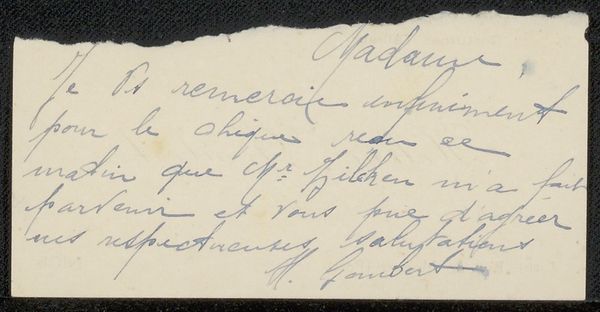 Madame,
Je Vs remercie infiniment
pour le chèque recu ce
matin que Mr Zilcken m'a fait
parvenir et vous prie d'agréer
mes respectueuses salutations
H. Goubert